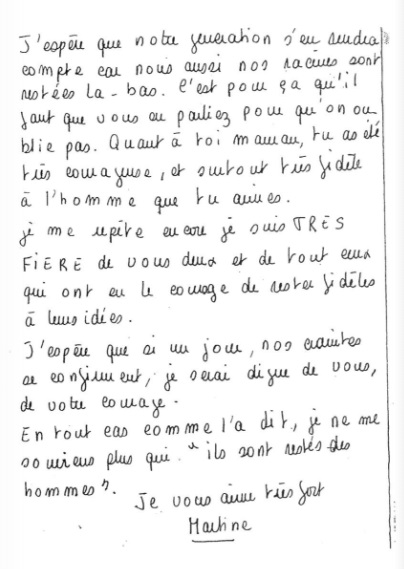 J'espère que notre generation s'en rendra
compte car nous aussi nos racines sont
restées là-bas. C'est pour ça qu'il
faut que vous en parliez pour qu'on ou
blie pas. Quant à toi maman, tu as été
très courageuse, et surtout très fidèle
à l'homme que tu aimes.
je me repète encore je suis TRES
FIERE de vous deux et de tout ceux
qui ont eu le courage de rester fidèles
à leurs idées.
J'espère que si un jour, nos craintes
se confirment, je serai digne de vous,
de votre courage.
En tout cas comme l'a dit, je ne me
souviens plus qui "ils sont restés des
hommes".
Je vous aime très fort
Martine